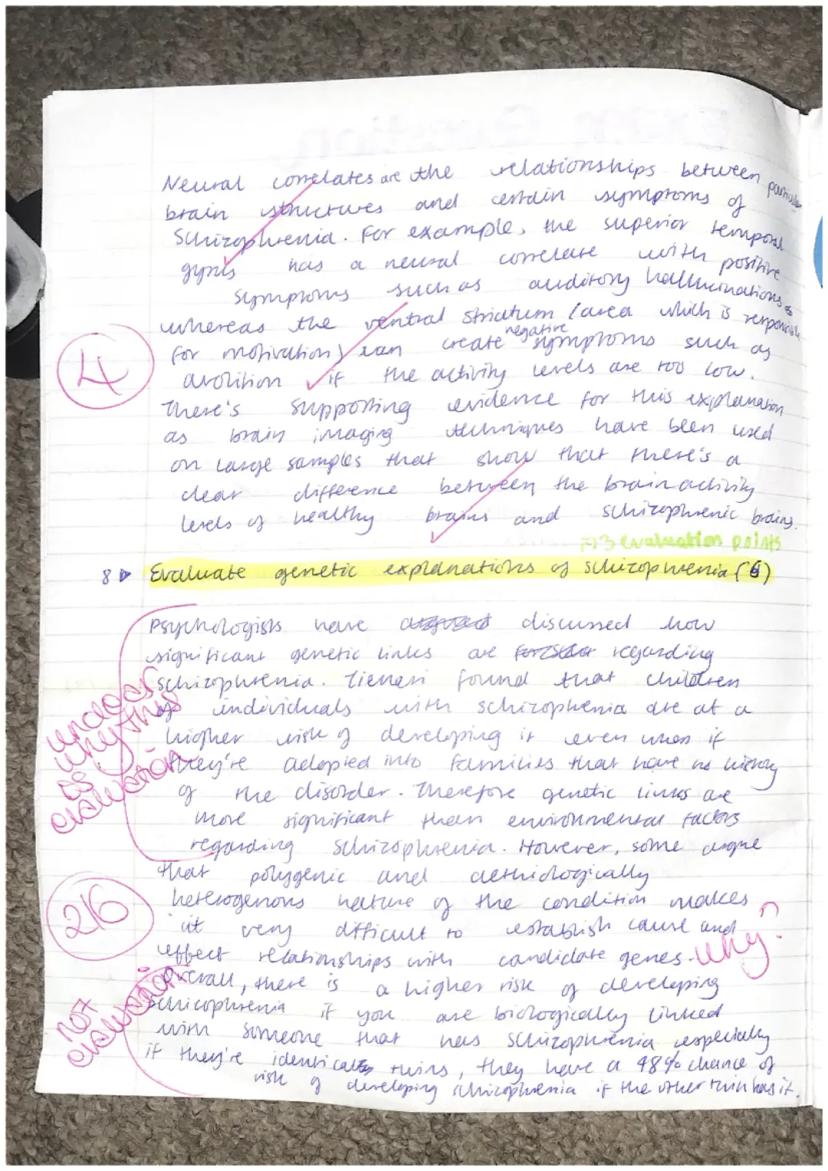 Neural correlates are the relationships between particular
brain structures and certain symptoms of
Schizophrenia. For example, the superior temporal
gyrus has a neural correlate with positive
symptoms such as auditory hallucinations
whereas the ventral striatum (area which is responsible
for motivation) can create negative symptoms such as
avolition if the activity levels are too low.
4
There's supporting evidence for this explanation
as brain imaging techniques have been used
on large samples that show that there's a
clear difference between the brain activity
levels of healthy brains and schizophrenic brains.
3 evaluation points
8 Evaluate genetic explanations of schizophrenia (6)
Psychologists have discussed how
significant genetic links are regarding
schizophrenia. Tienari found that children
of individuals with schizophrenia are at a
higher risk of developing it even when if
they're adopted into families that have no history
of the disorder. Therefore genetic links are
more significant than environmental factors
regarding schizophrenia. However, some argue
unclear
why this
is
evaluation
that polygenic and aethiologically
heterogenous nature of the condition makes
it very difficult to establish cause and
effect relationships with candidate genes. why?
2/6
Overall, there is a higher risk of developing
schizophrenia if you are biologically linked
with someone that has schizophrenia especially
if they're identical twins, they have a 48% chance of
risk of developing schizophrenia if the other twin has it.
not
evaluation